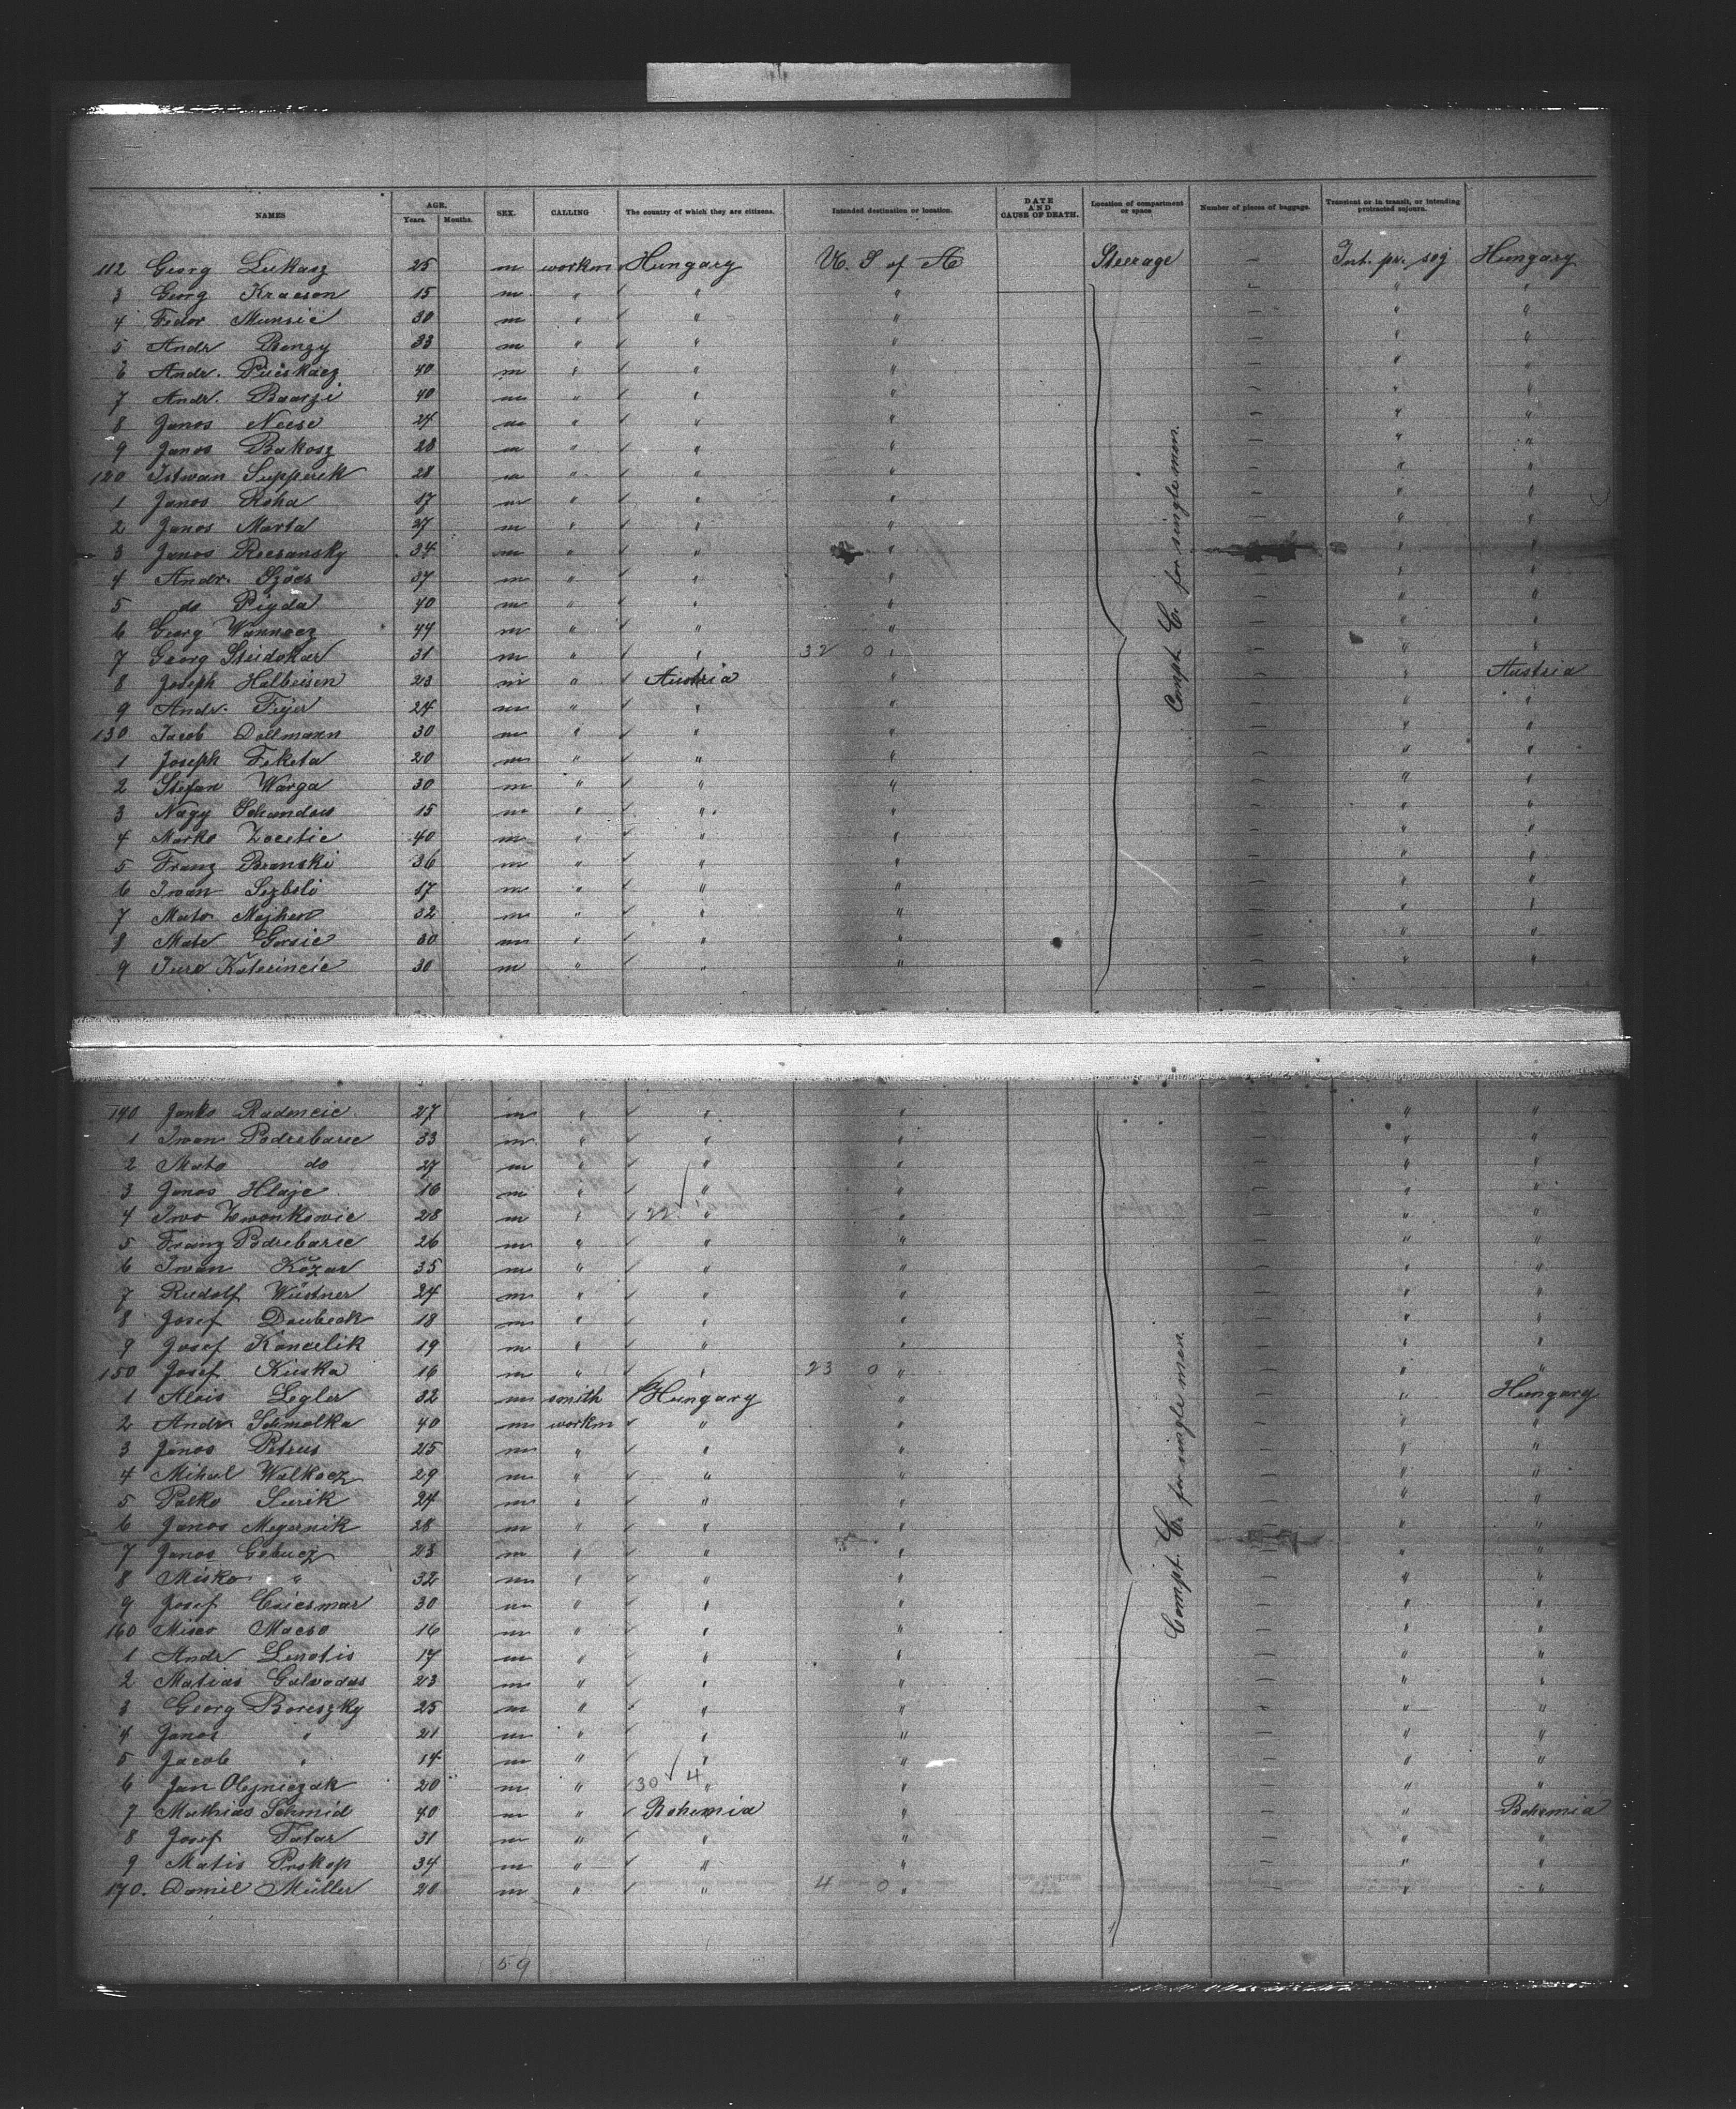 NAMES AGE. Years. Months. SEX. CALLING The country of which they are citizens. Intended destination or location. DATE AND CAUSE OF DEATH. Location of compartment or space Number of pieces of baggage. Transient or in transit, or intending protracted sojourn.
112 Georg Lukasz 25 m workm Hungary U. S of A Steerage — Int. pr. soj Hungary
3 Georg Kracson 15 m " " " — " "
4 Fedor Munsic 30 m " " " — " "
5 Andr Benzy 33 m " " " — " "
6 Andr. 40 m " " " — " "
7 Andr. 40 m " " " — " "
8 Janos Neese 24 m " " " — " "
9 Janos Bakosz 28 m " " " — " "
120 Istwan Supperek 28 m " " " — " "
1 Janos Roha 17 m " " " — " "
2 Janos Marta 27 m " " " — " "
3 Janos Recsansky 34 m " " " " "
4 Andr. Szöcs 37 m " " " — " "
5 do Pigda 40 m " " " — " "
6 Georg 44 m " " " — " "
7 Georg 31 m " " 32 0 " " "
8 Joseph Halbeisen 23 m " Austria " — " Austria
9 Andr. Fejer 24 m " " " — " "
130 Jacob Dollmann 30 m " " " — " "
1 Joseph Feketa 20 m " " " — " "
2 Stefan Warga 30 m " " " — " "
3 Nagy 15 m " " " — " "
4 Marko Zocetic 40 m " " " — " "
5 Franz Branski 36 m " " " — " "
6 Iwan 17 m " " " — " "
7 Mato Majhen 32 m " " " — " "
8 Mate Gorsic 30 m " " " — " "
9 Juro Katrincic 30 m " " " — " "
Compt. C. for single men.
140 Janko Radmcic 27 m " " " " "
1 Iwan Podrebarec 33 m " " " — " "
2 Mato do 27 m " " " — " "
3 Janos Hlaje 16 m " " " — " "
4 Iwo Zwonkowic 28 m " 22 " " — " "
5 Franz Podrebarec 26 m " " " — " "
6 Iwan Kozar 35 m " " " — " "
7 Rudolf Wüstner 24 m " " " — " "
8 Josef Doubeck 18 m " " " — " "
9 Josef Koncelik 19 m " " " — " "
150 Josef Kuska 16 m " " 23 0 " — " "
1 Alois Legler 32 m smith Hungary " — " Hungary
2 Andr. Schmolka 40 m workm " " — " "
3 Janos Petrus 25 m " " " — " "
4 Mihal Walkocz 29 m " " " — " "
5 Palko Surik 24 m " " " — " "
6 Janos Megernik 28 m " " " — " "
7 Janos Gebucz 23 m " " " — " "
8 Misko " 32 m " " " — " "
9 Josef Csiesmar 30 m " " " — " "
160 Misco Macso 16 m " " " — " "
1 Andr 17 m " " " — " "
2 Matias Galvadas 23 m " " " — " "
3 Georg Boreszky 25 m " " " — " "
4 Janos " 21 m " " " — " "
5 Jacob " 14 m " " " — " "
6 Jan Olejniczak 20 m " 30 4 " " — " "
7 Mathias Schmid 40 m " Bohemia " — " Bohemia
8 Josef Tatar 31 m " " " — " "
9 Matis Prokop 34 m " " " — " "
170. Daniel Müller 20 m " " 4 0 " — " "
Compt. C. for single men.
59